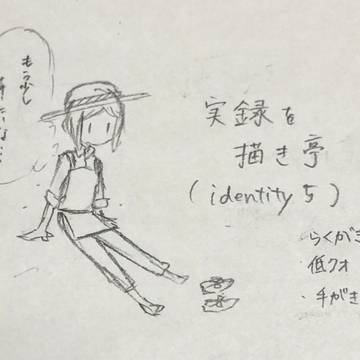 もう少し
実録を
描き亭
(identity 5)
・らくがき
・低クオ
・手がき